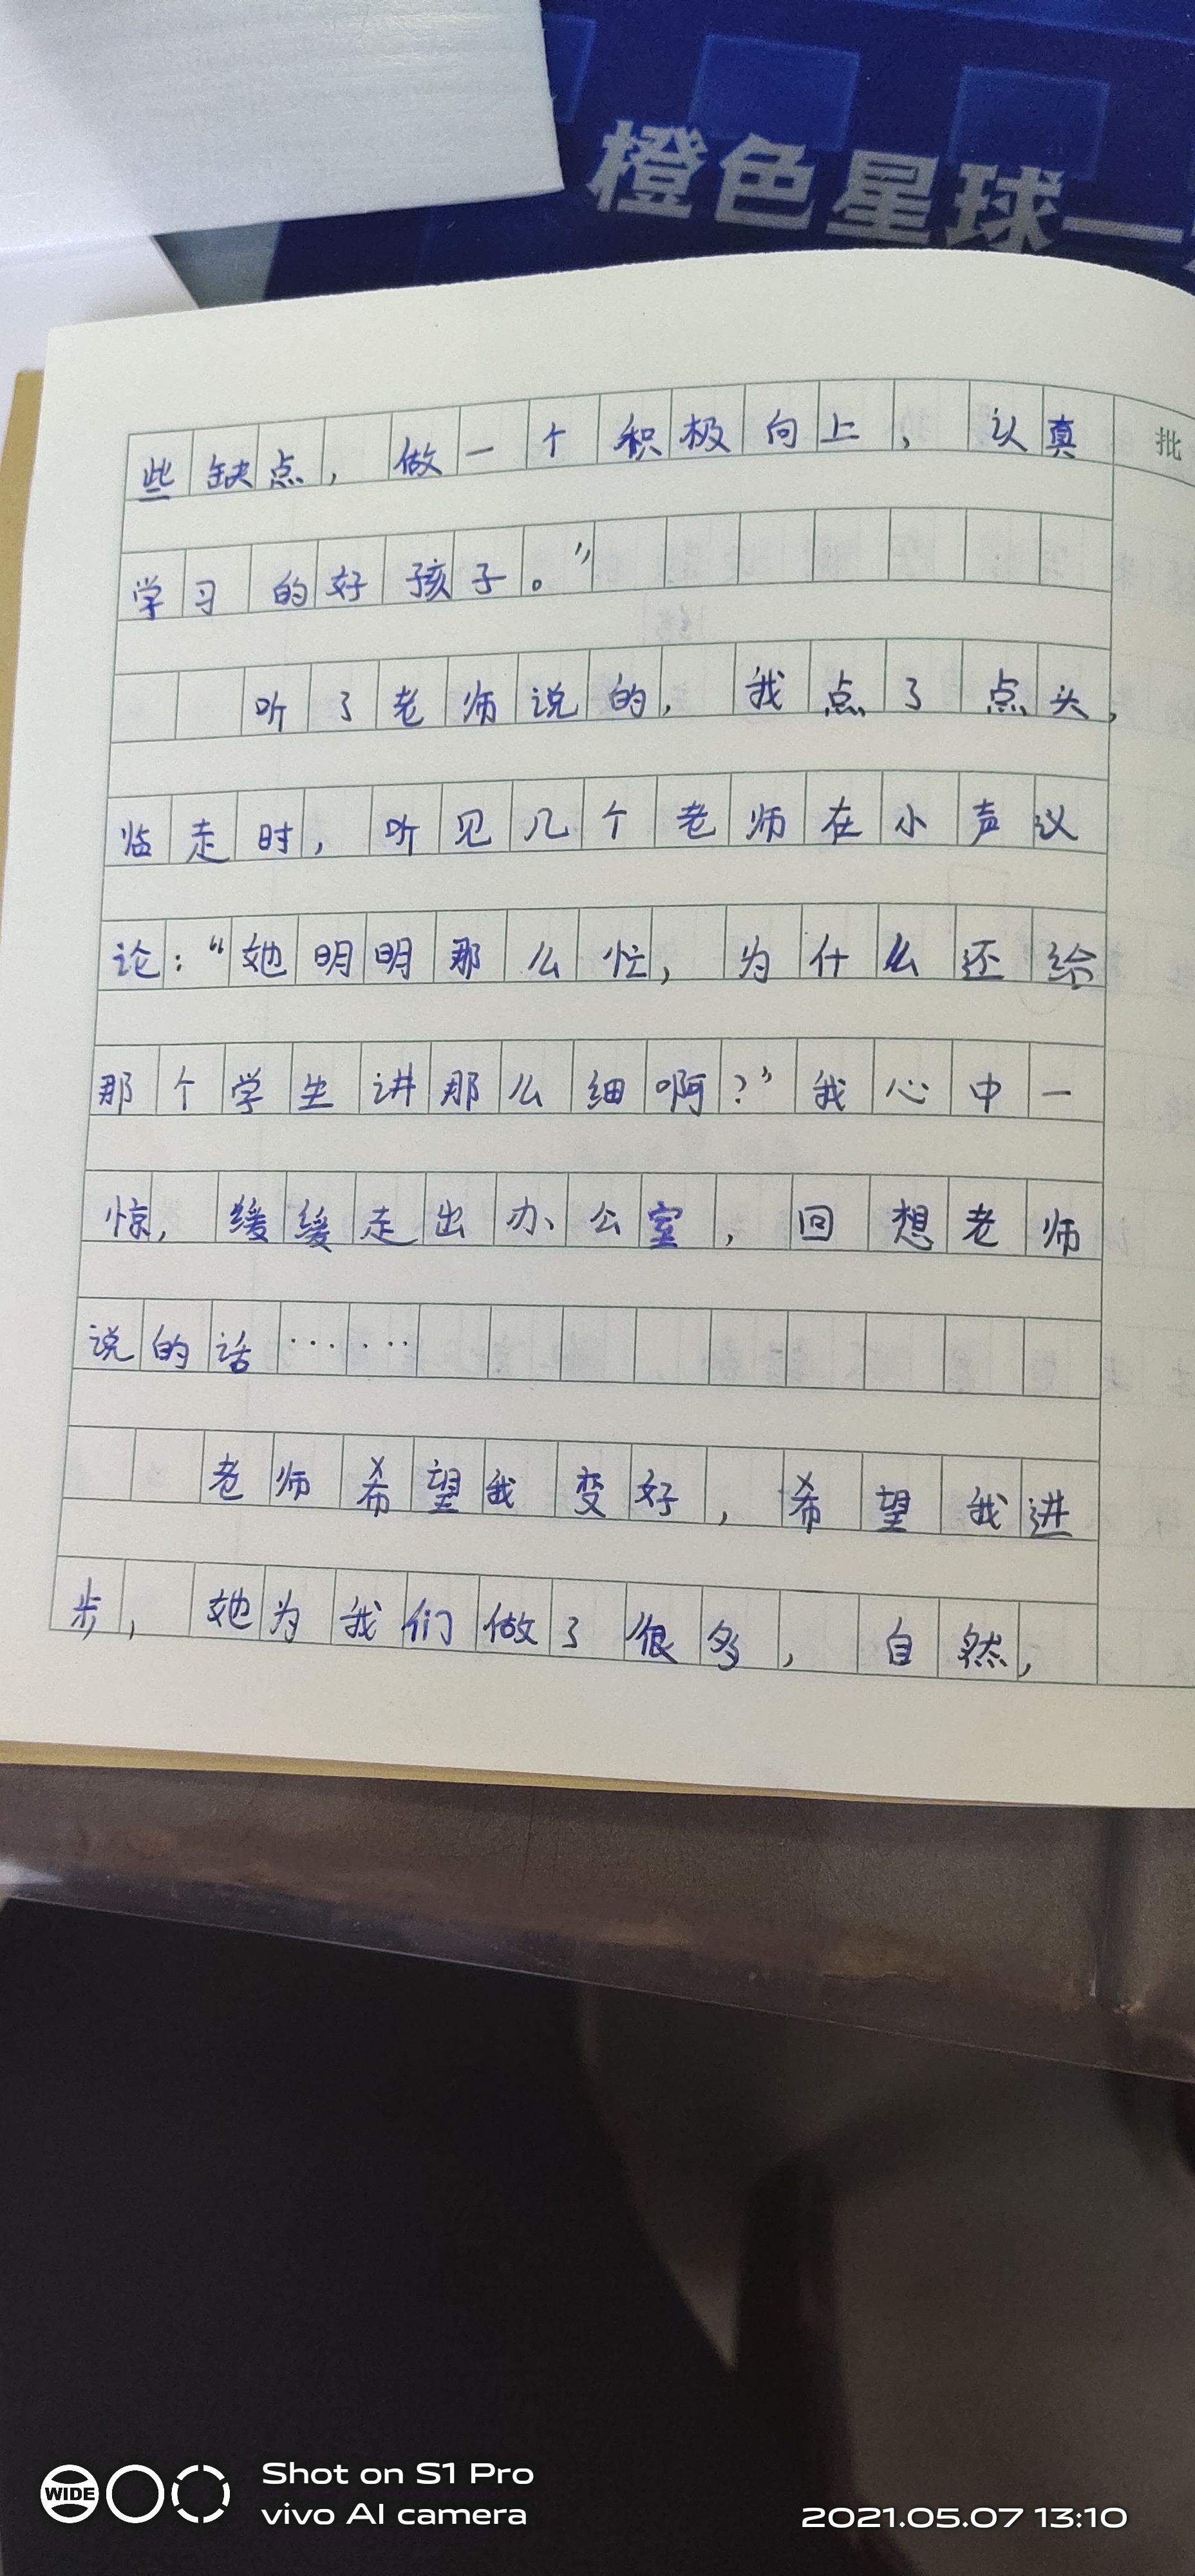 橙色星球一
些缺点，做一个积极向上，认真
批
学习的好孩子。”
听了老师说的，我点了点头，
临走时，听见几个老师在小声议
论：“她明明那么忙，为什么还给
那个学生讲那么细啊？”我心中一
惊，缓缓走出办公室，回想老师
说的话……
老师希望我变好，希望我进
步，她为我们做了很多，自然，
WIDE
Shot on S1 Pro
vivo AI camera
2021.05.07 13:10